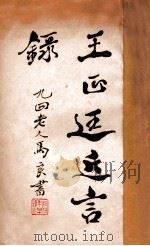 王正廷近言
錄
九四老人馬良書
mtoou.info mtoou.info